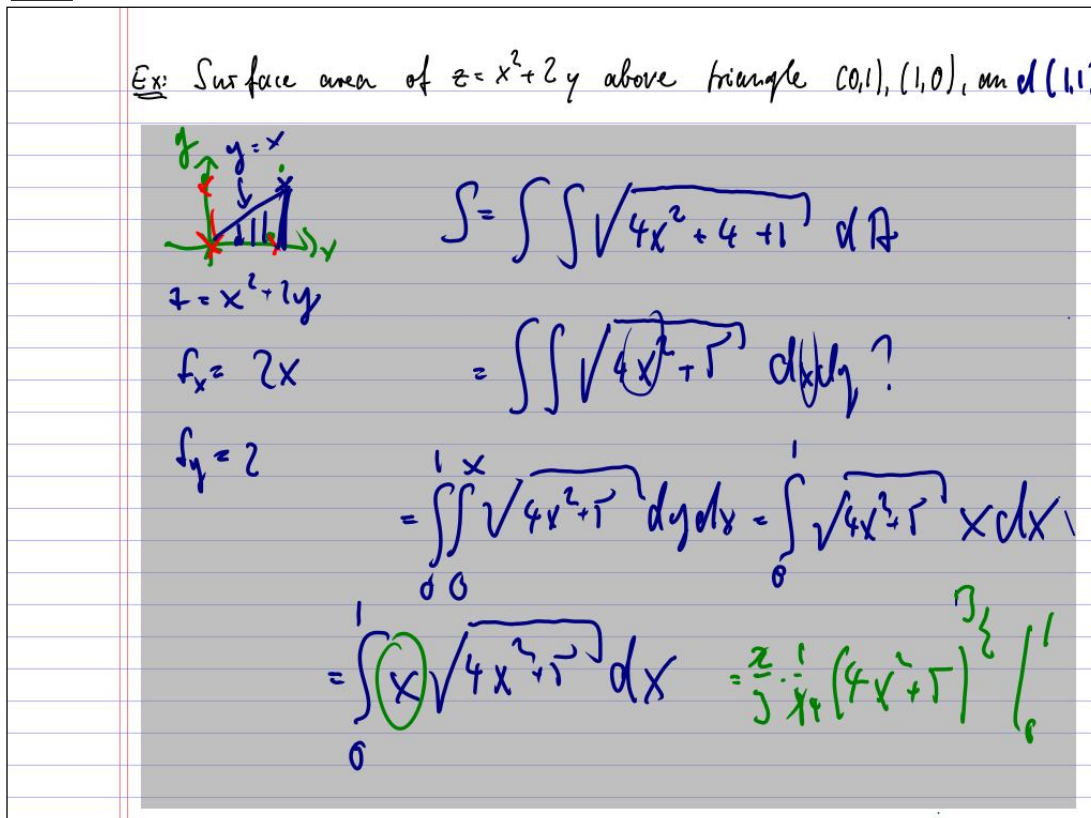 Ex: Surface area of z = x² + 2y above triangle (0,1), (1,0), and (1,1)
y y = x
x
S = ∫∫ √(4x² + 4 + 1) dA
z = x² + 2y
f_x = 2x
= ∫∫ √(4x² + 5) dx dy ?
f_y = 2
= ∫₀¹ ∫₀ˣ √(4x² + 5) dy dx = ∫₀¹ √(4x² + 5) x dx
= ∫₀¹ x √(4x² + 5) dx = 2/3 · 1/8 (4x² + 5)^{3/2} |₀¹